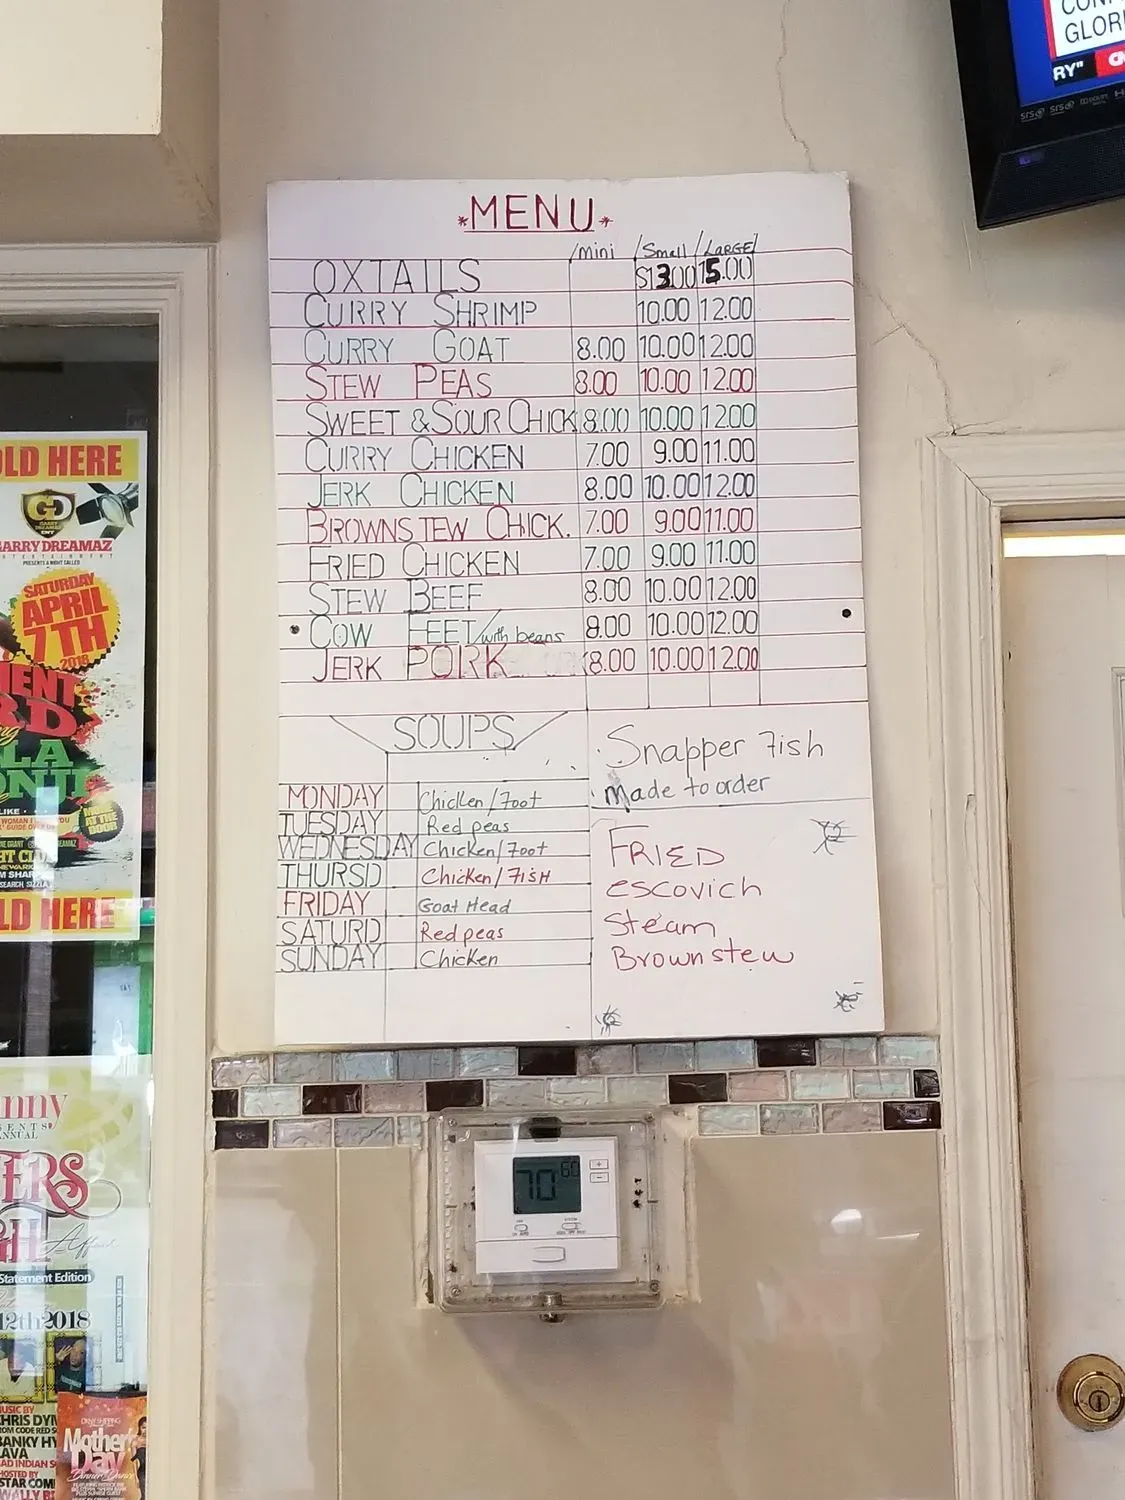 *MENU*
mini / Small / LARGE
OXTAILS $13.00 15.00
CURRY SHRIMP 10.00 12.00
CURRY GOAT 8.00 10.00 12.00
STEW PEAS 8.00 10.00 12.00
SWEET & SOUR CHICK 8.00 10.00 12.00
CURRY CHICKEN 7.00 9.00 11.00
JERK CHICKEN 8.00 10.00 12.00
BROWNSTEW CHICK. 7.00 9.00 11.00
FRIED CHICKEN 7.00 9.00 11.00
STEW BEEF 8.00 10.00 12.00
COW FEET/with beans 8.00 10.00 12.00
JERK PORK 8.00 10.00 12.00
SOUPS
MONDAY Chicken/Foot
TUESDAY Red peas
WEDNESDAY Chicken/Foot
THURSD Chicken/FisH
FRIDAY Goat Head
SATURD Red peas
SUNDAY Chicken
Snapper Fish
Made to order
FRIED
escovich
Steam
Brownstew
GLOR
RY"
OLD HERE
GD
GARRY DREAMAZ
PRESENTS A NIGHT CALLED
SATURDAY
APRIL
7TH
2018
MENT
LA
ONJI
LD HERE
ANNUAL
ERS
GH
Affair
Statement Edition
12th 2018
MUSIC BY
CHRIS DYN
FROM CODE RED
BANKY HY
LAVA
HOSTED BY
STAR COM
WALLY B
Mother
Day
Dinner Dance
70
60